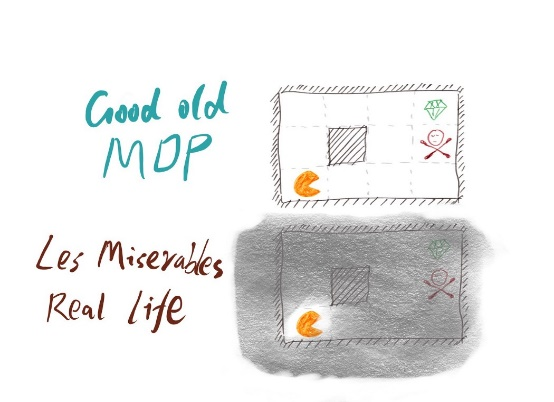 Good old
MDP
Les Miserables
Real life